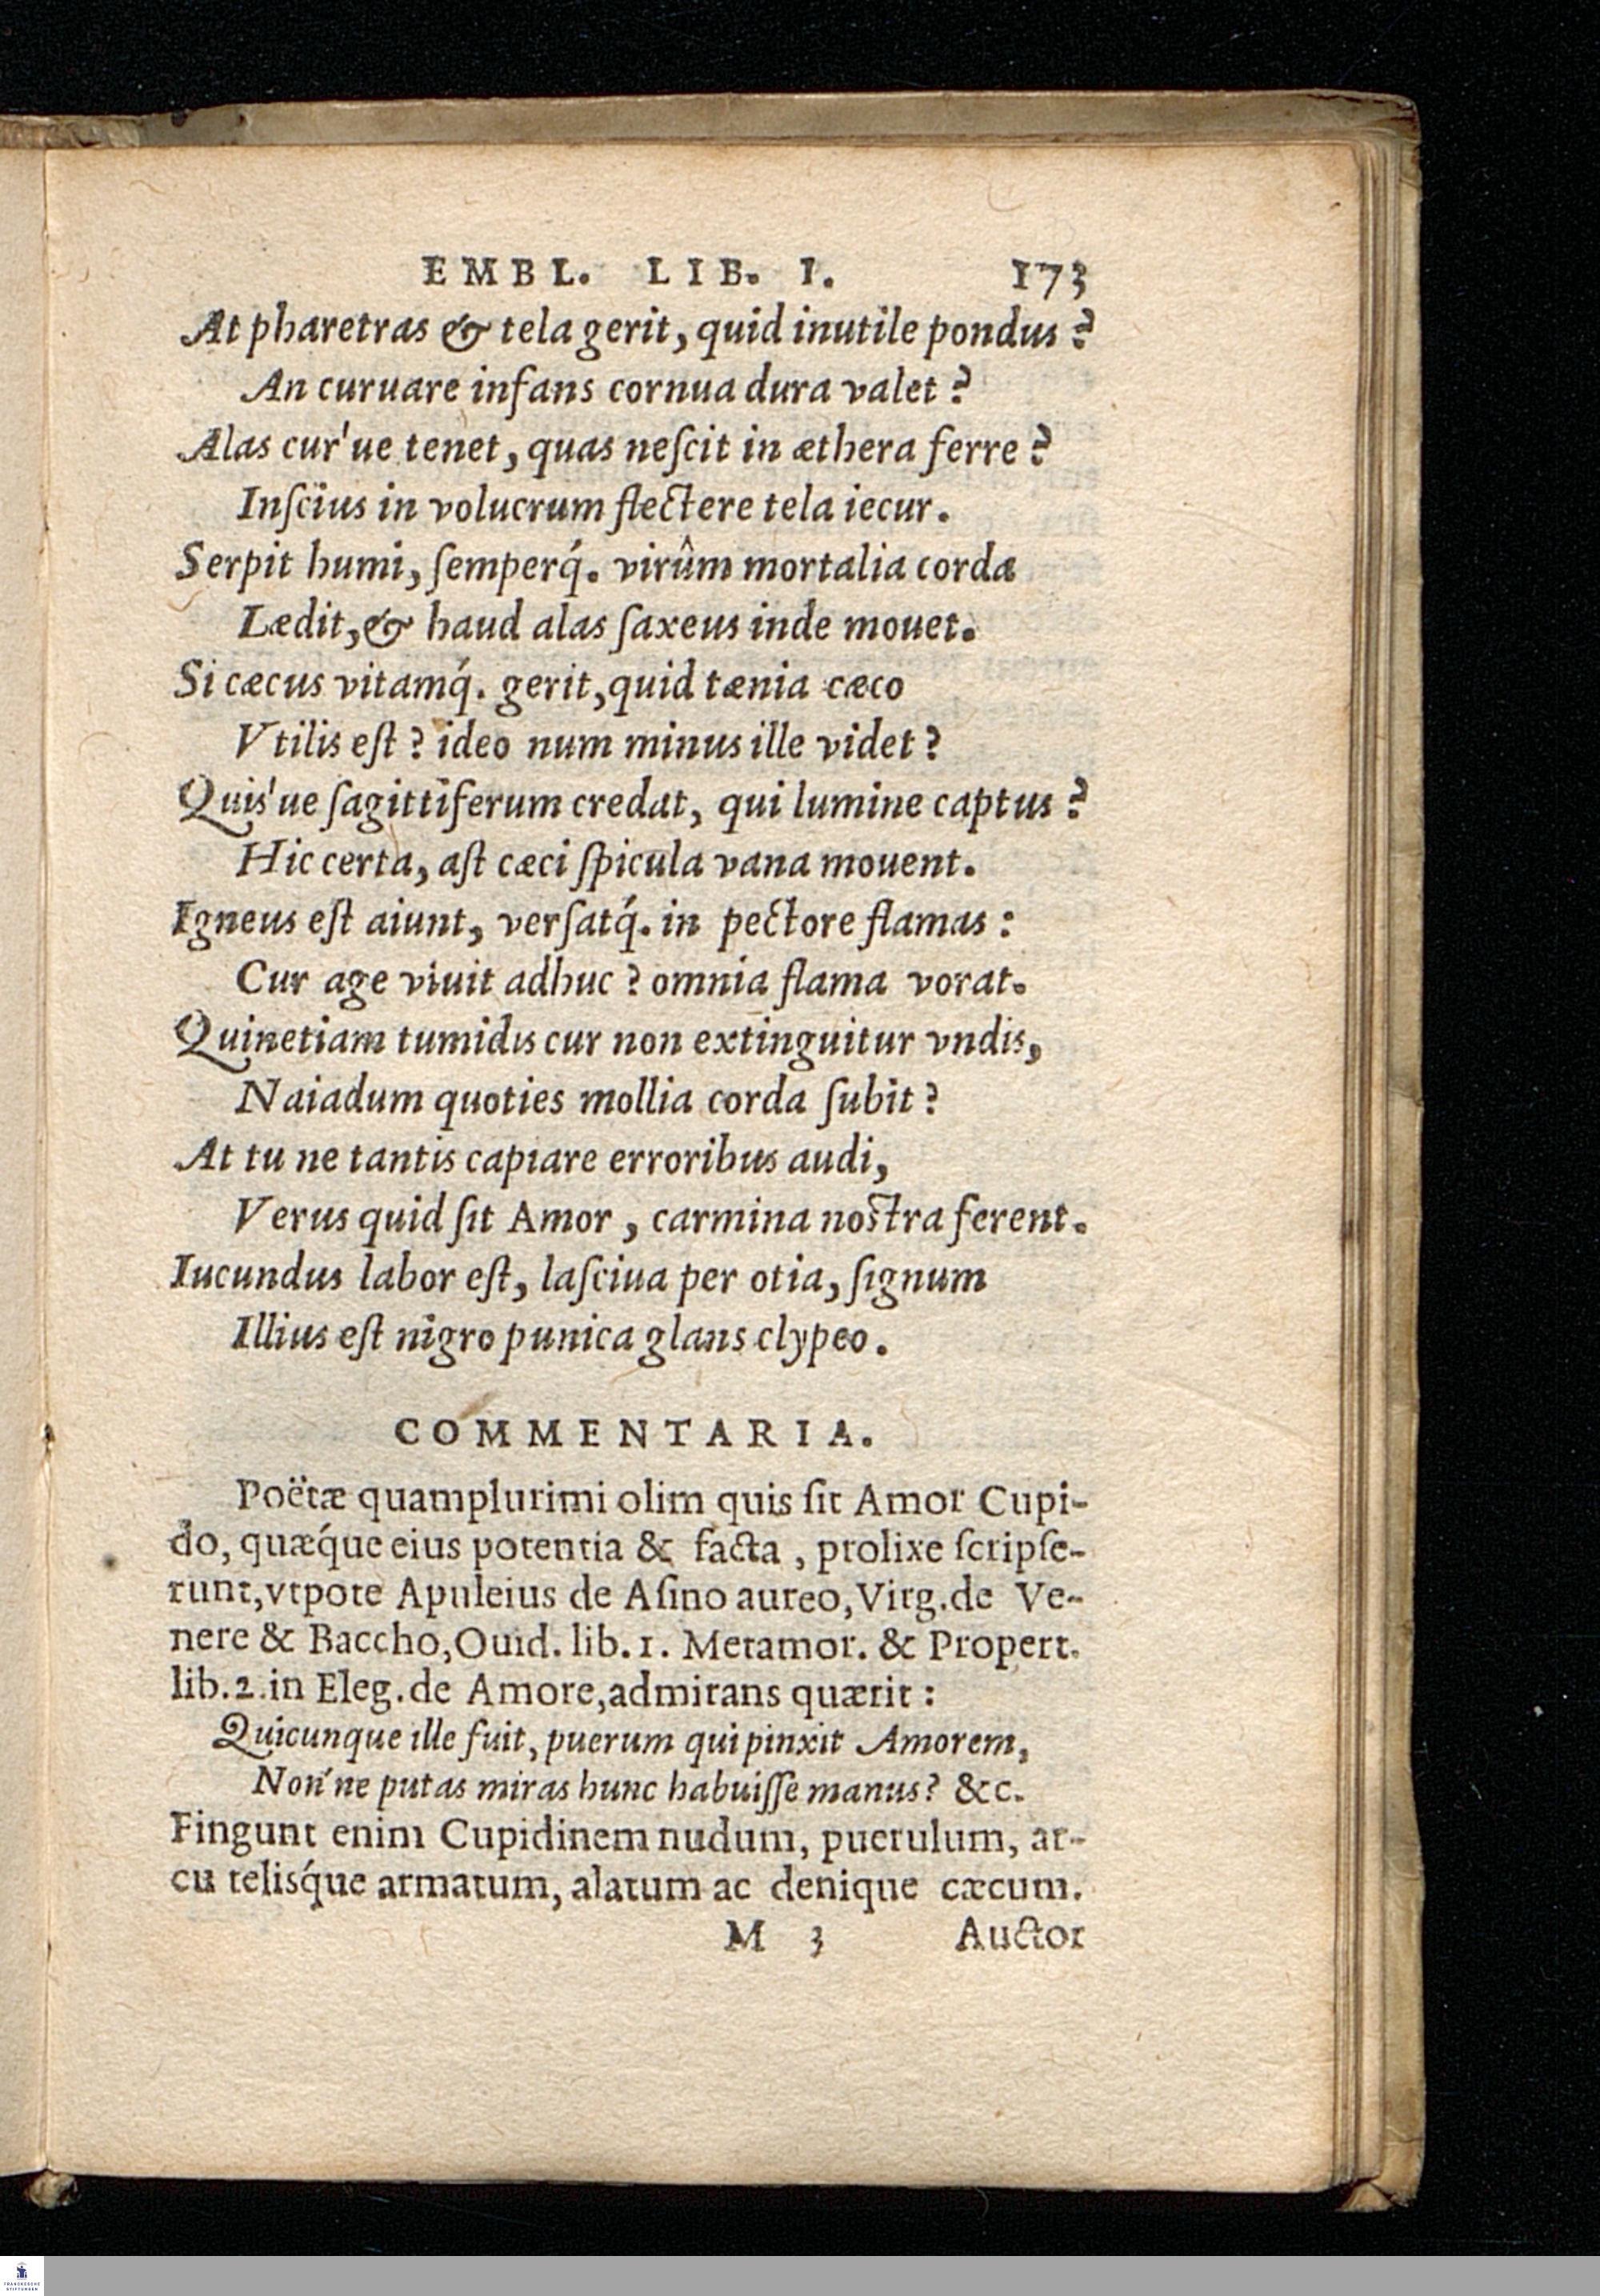 EMBL. LIB. I. 173
At pharetras & tela gerit, quid inutile pondus?
An curuare infans cornua dura valet?
Alas cur'ue tenet, quas neſcit in æthera ferre?
Inſcius in volucrum flectere tela iecur.
Serpit humi, ſemperq́. virûm mortalia corda
Lædit, & haud alas ſaxeus inde mouet.
Si cæcus vitamq́. gerit, quid tænia cæco
Vtilis eſt? ideo num minus ille videt?
Quis'ue ſagittiferum credat, qui lumine captus?
Hic certa, aſt cæci ſpicula vana mouent.
Igneus eſt aiunt, verſatq́. in pectore flamas:
Cur age viuit adhuc? omnia flama vorat.
Quinetiam tumidis cur non extinguitur vndis,
Naiadum quoties mollia corda ſubit?
At tu ne tantis capiare erroribus audi,
Verus quid ſit Amor, carmina noſtra ferent.
Iucundus labor eſt, laſciua per otia, ſignum
Illius eſt nigro punica glans clypeo.
COMMENTARIA.
Poëtæ quamplurimi olim quis ſit Amor Cupi-
do, quæq́ue eius potentia & facta, prolixe ſcripſe-
runt, vtpote Apuleius de Aſino aureo, Virg. de Ve-
nere & Baccho, Ouid. lib. 1. Metamor. & Propert.
lib. 2. in Eleg. de Amore, admirans quærit:
Quicunque ille fuit, puerum qui pinxit Amorem,
Non'ne putas miras hunc habuiſſe manus? &c.
Fingunt enim Cupidinem nudum, puerulum, ar-
cu telisq́ue armatum, alatum ac denique cæcum.
M 3 Auctor
FRANCKESCHE
STIFTUNGEN